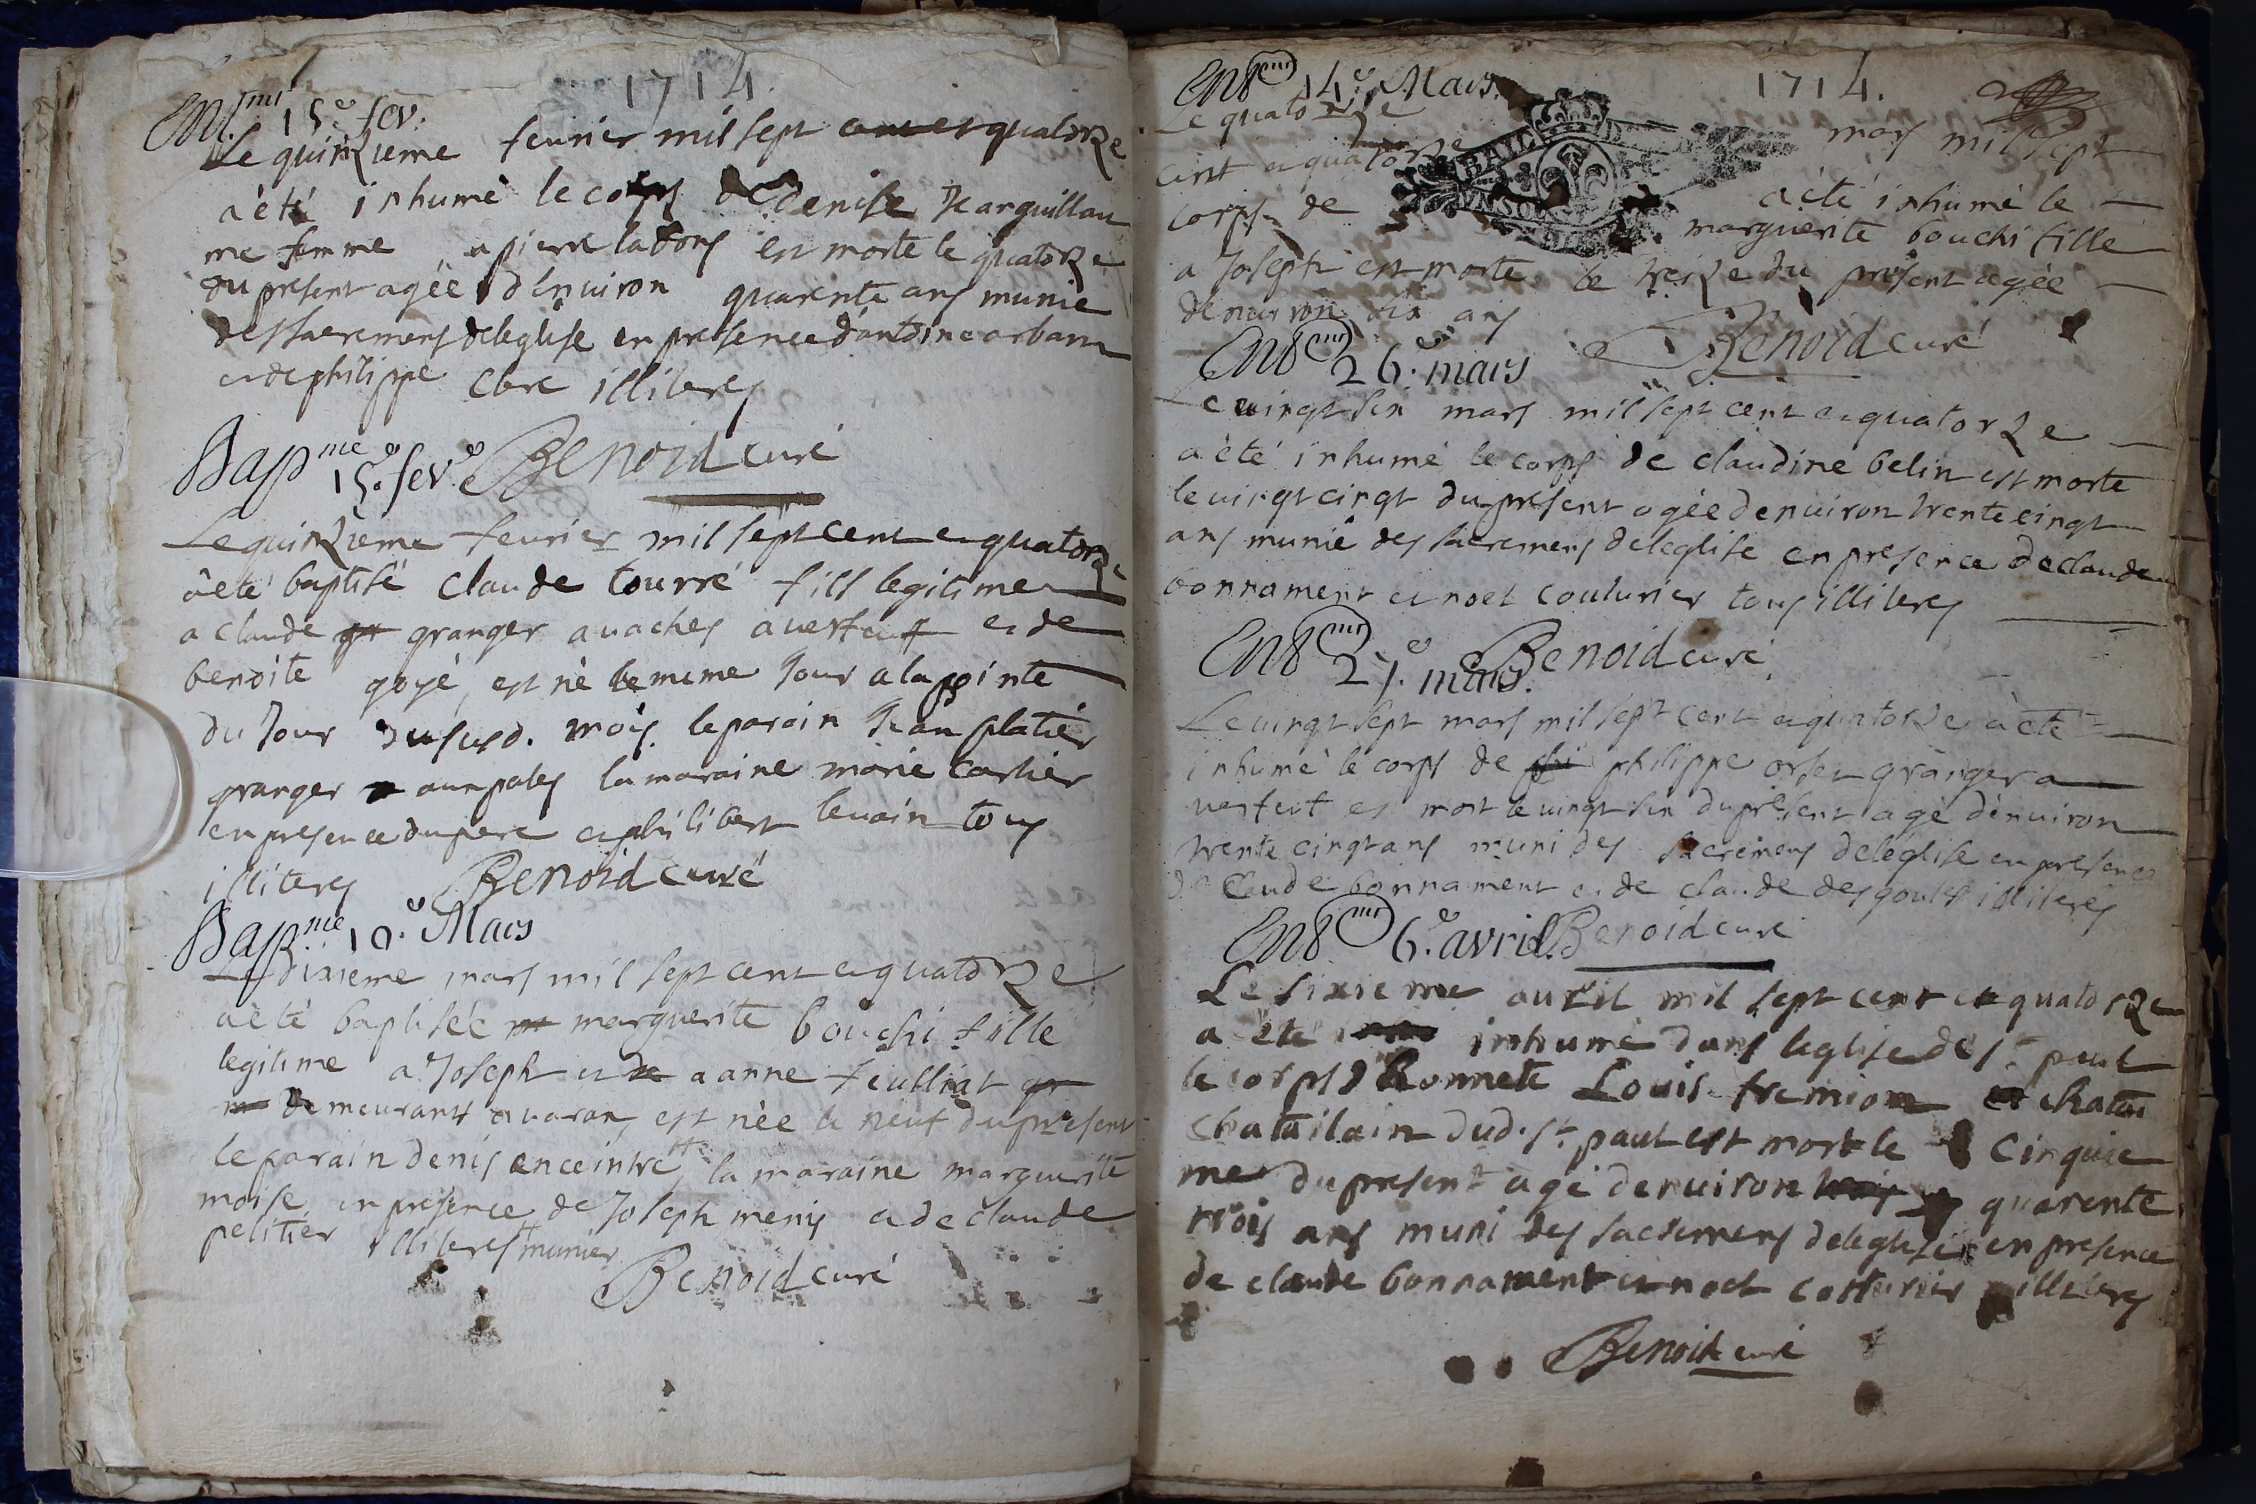 1714.
15e fev.
Le quinzieme fevrier mil sept cent et quatorze
a été inhumé le corps de denise
me femme a pierre lafons est morte le quatorze
du present agée d'environ quarente ans munie
des sacremens de leglise en presence d'antoine
et de philippe clerc illiteres
Bapme 15e fev. Benoid curé
Le quinzieme fevrier mil sept cent et quatorze
a été baptisé claude tourré fils legitime
a claude granger a vaches a verfeut et de
benoite goyé, est né le meme jour a la pointe
du jour du susd. mois. le parain jean platier
granger aux pales la maraine marie carlier
en presence du pere et philibert levain tous
illiteres Benoid curé
Bapme 10e Mars
Le dixieme mars mil sept cent et quatorze
a été baptisée marguerite bouchi fille
legitime a joseph et a anne feulliat
demeurants a varan, est née le neuf du present
le parain denis enceintre la maraine marguerite
moise en presence de joseph meny et de claude
petitier illiteres munier
Benoid curé
14e Mars 1714.
Le quatorze mars mil sept
cent et quatorze a été inhumé le
BAIL D
corps de marguerite bouchi fille
a joseph est morte le treize du present agée
denviron dix ans
Benoid curé
26e mars
Le vingt six mars mil sept cent et quatorze
a été inhumé le corps de claudine belin est morte
le vingt cinqt du present agée denviron trente cinqt
ans munie des sacremens de leglise en presence de claude
bonnament et noel couturier tous illiteres
27e mars. Benoid curé
Le vingt sept mars mil sept cent et quatorze a été
inhumé le corps de philippe orset granger a
verfeut est mort le vingt six du present agé d'environ
trente cinqt ans muni des sacremens de leglise en presence
de Claude bonnament et de claude desgoutes illiteres
6e avril. Benoid curé
Le sixieme avril mil sept cent et quatorze
a été inhumé dans leglise de st paul
le corps d honnete Louis fremion
chatailain dud. st paul est mort le cinquie
me du present agé denviron quarente
trois ans muni des sacremens de leglise en presence
de claude bonnament et noel cotturier illiteres
Benoid curé